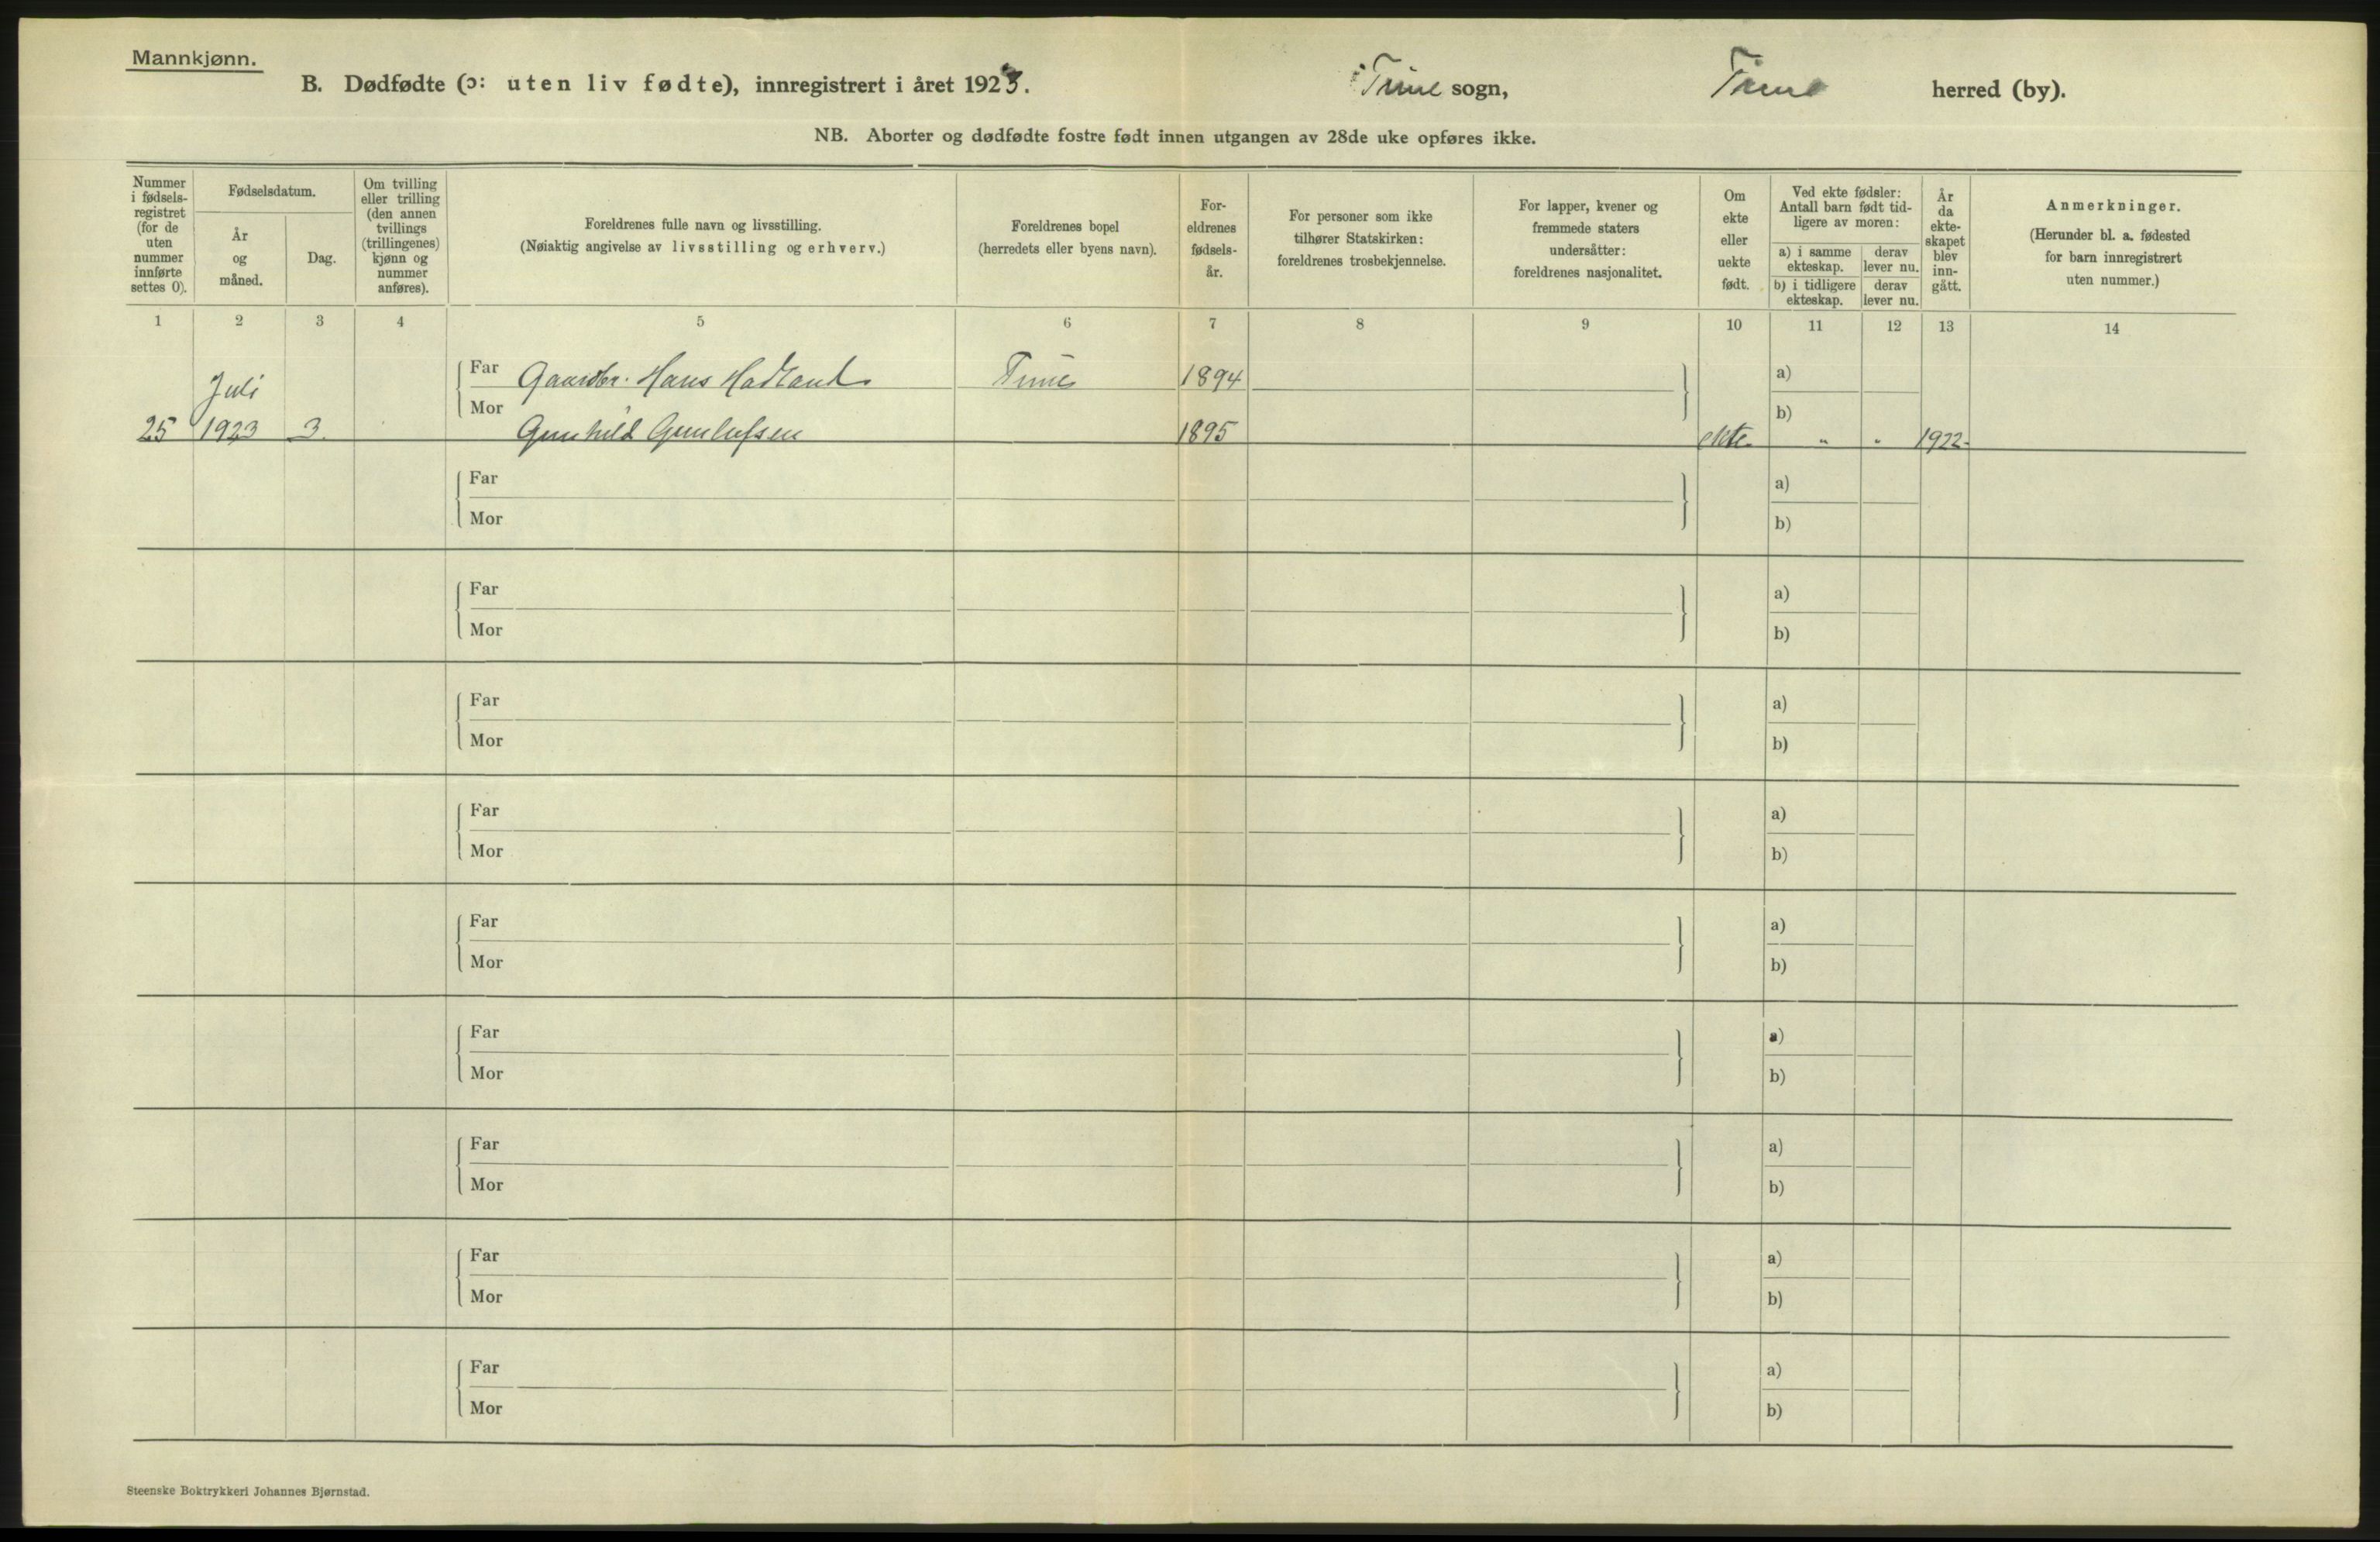 Mannkjønn.
B. Dødfødte (ɔ: uten liv fødte), innregistrert i året 1923. Time sogn, Time herred (by).
NB. Aborter og dødfødte fostre født innen utgangen av 28de uke opføres ikke.
Nummer i fødsels-registret (for de uten nummer innførte settes 0).
Fødselsdatum.
År og måned.
Dag.
Om tvilling eller trilling (den annen tvillings (trillingenes) kjønn og nummer anføres).
Foreldrenes fulle navn og livsstilling.
(Nøiaktig angivelse av livsstilling og erhverv.)
Foreldrenes bopel
(herredets eller byens navn).
For-eldrenes fødsels-år.
For personer som ikke tilhører Statskirken: foreldrenes trosbekjennelse.
For lapper, kvener og fremmede staters undersåtter: foreldrenes nasjonalitet.
Om ekte eller uekte født.
Ved ekte fødsler: Antall barn født tid-ligere av moren:
a) i samme ekteskap.
derav lever nu.
b) i tidligere ekteskap.
derav lever nu.
År da ekte-skapet blev inn-gått.
Anmerkninger.
(Herunder bl. a. fødested for barn innregistrert uten nummer.)
1 2 3 4 5 6 7 8 9 10 11 12 13 14
Far Gaardbr. Hans Hadland Time 1894 a)
Juli
Mor b)
25 1923 3. Gunhild Gunlufsen 1895 ekte. " " 1922.
Far a)
Mor b)
Far a)
Mor b)
Far a)
Mor b)
Far a)
Mor b)
Far a)
Mor b)
Far a)
Mor b)
Far a)
Mor b)
Far a)
Mor b)
Far a)
Mor b)
Steenske Boktrykkeri Johannes Bjørnstad.